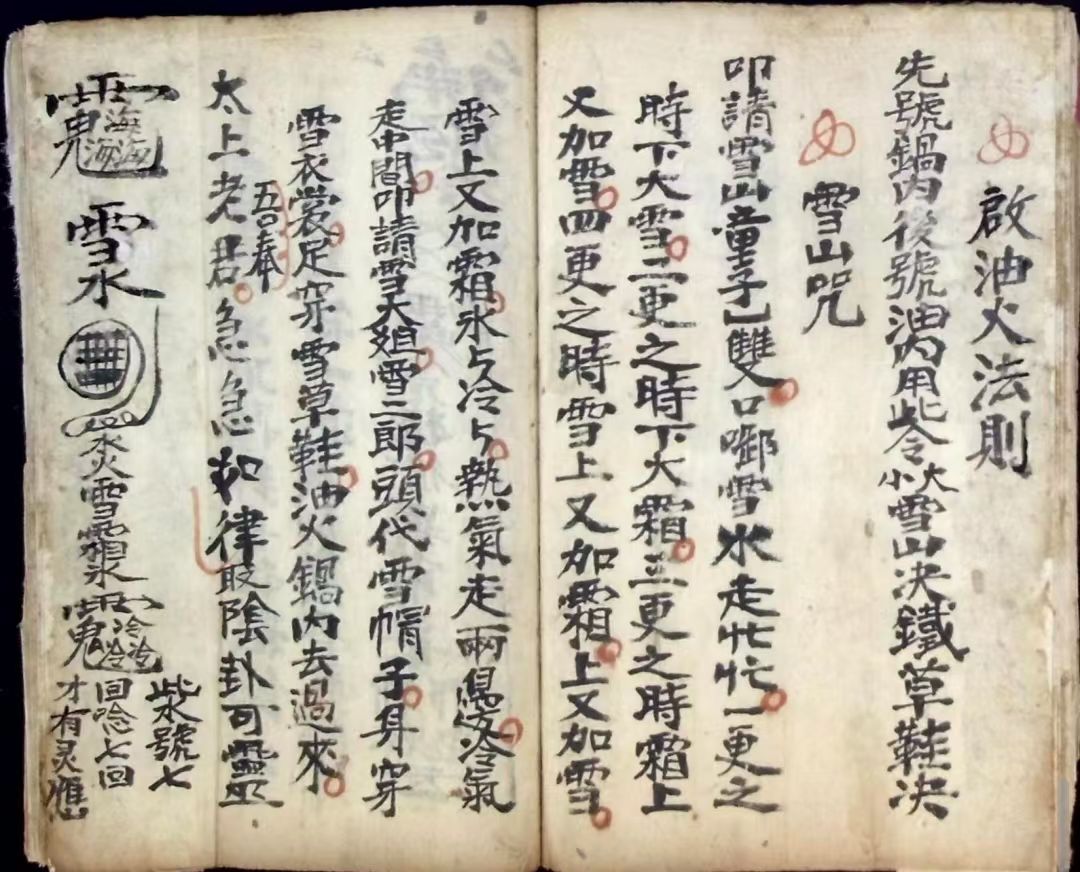 啟油火法則
先號鍋內後號油內用此令火雪山决鐵草鞋决
雪山咒
叩請雪山童子乚雙口啣雪水走忙忙一更之
時下大雪二更之時下大霜三更之時霜上
又加雪四更之時雪上又加霜上又加雪
雪上又加霜氷与冷与熱氣走兩邊冷氣
走中間叩請雪大姐雪二郎頭代雪帽子身穿
雪衣裳足穿雪草鞋油火鍋內去過來
太上老君急急如律
五〇奉
取陰卦可
雪氷
雪霜氷
此水號七
回唸七回
才有灵應